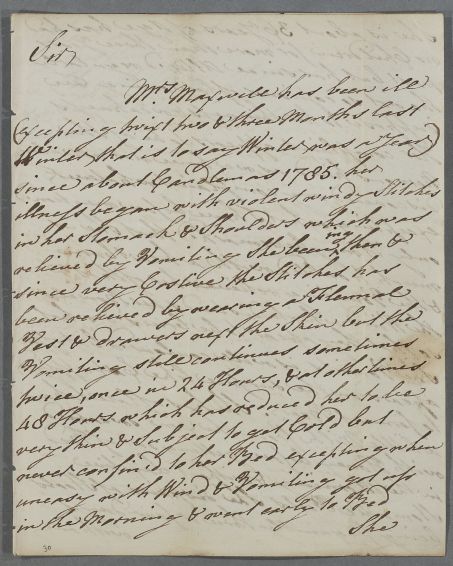 Sir
Mrs Maxwell has been ill
(excepting twixt two & three Months last
Winter that is to say Winter was a Year)
since about Candlemas 1785. her
illness began with violent windy Stitches
in her Stomach & Shoulders which was
relieved by Vomiting She being then &
since very Costive the Stitches has
been relieved by wearing a Flannal
Vest & drawers next the Skin but the
Vomiting still continues sometimes
twice, once in 24 Hours, & at other times
48 Hours which has reduced her to be
very thin & Subject to get Cold but
never confin'd to her Bed excepting when
uneasy with Wind & Vomiting got up
in the Morning & went early to Bed
She
30